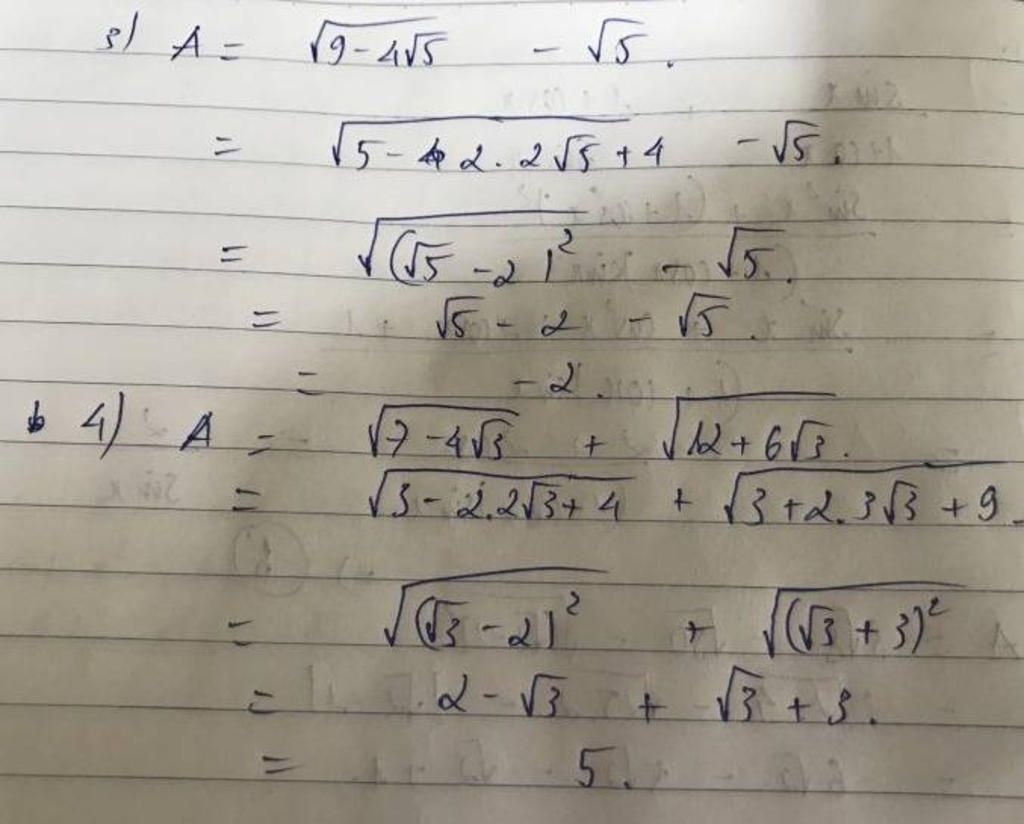 3) A = √(9 - 4√5) - √5.
= √(5 - 2.2√5 + 4) - √5.
= √((√5 - 2)²) - √5.
= √5 - 2 - √5.
= -2.
4) A = √(7 - 4√3) + √(12 + 6√3).
= √(3 - 2.2√3 + 4) + √(3 + 2.3√3 + 9).
= √((√3 - 2)²) + √((√3 + 3)²)
= 2 - √3 + √3 + 3.
= 5.